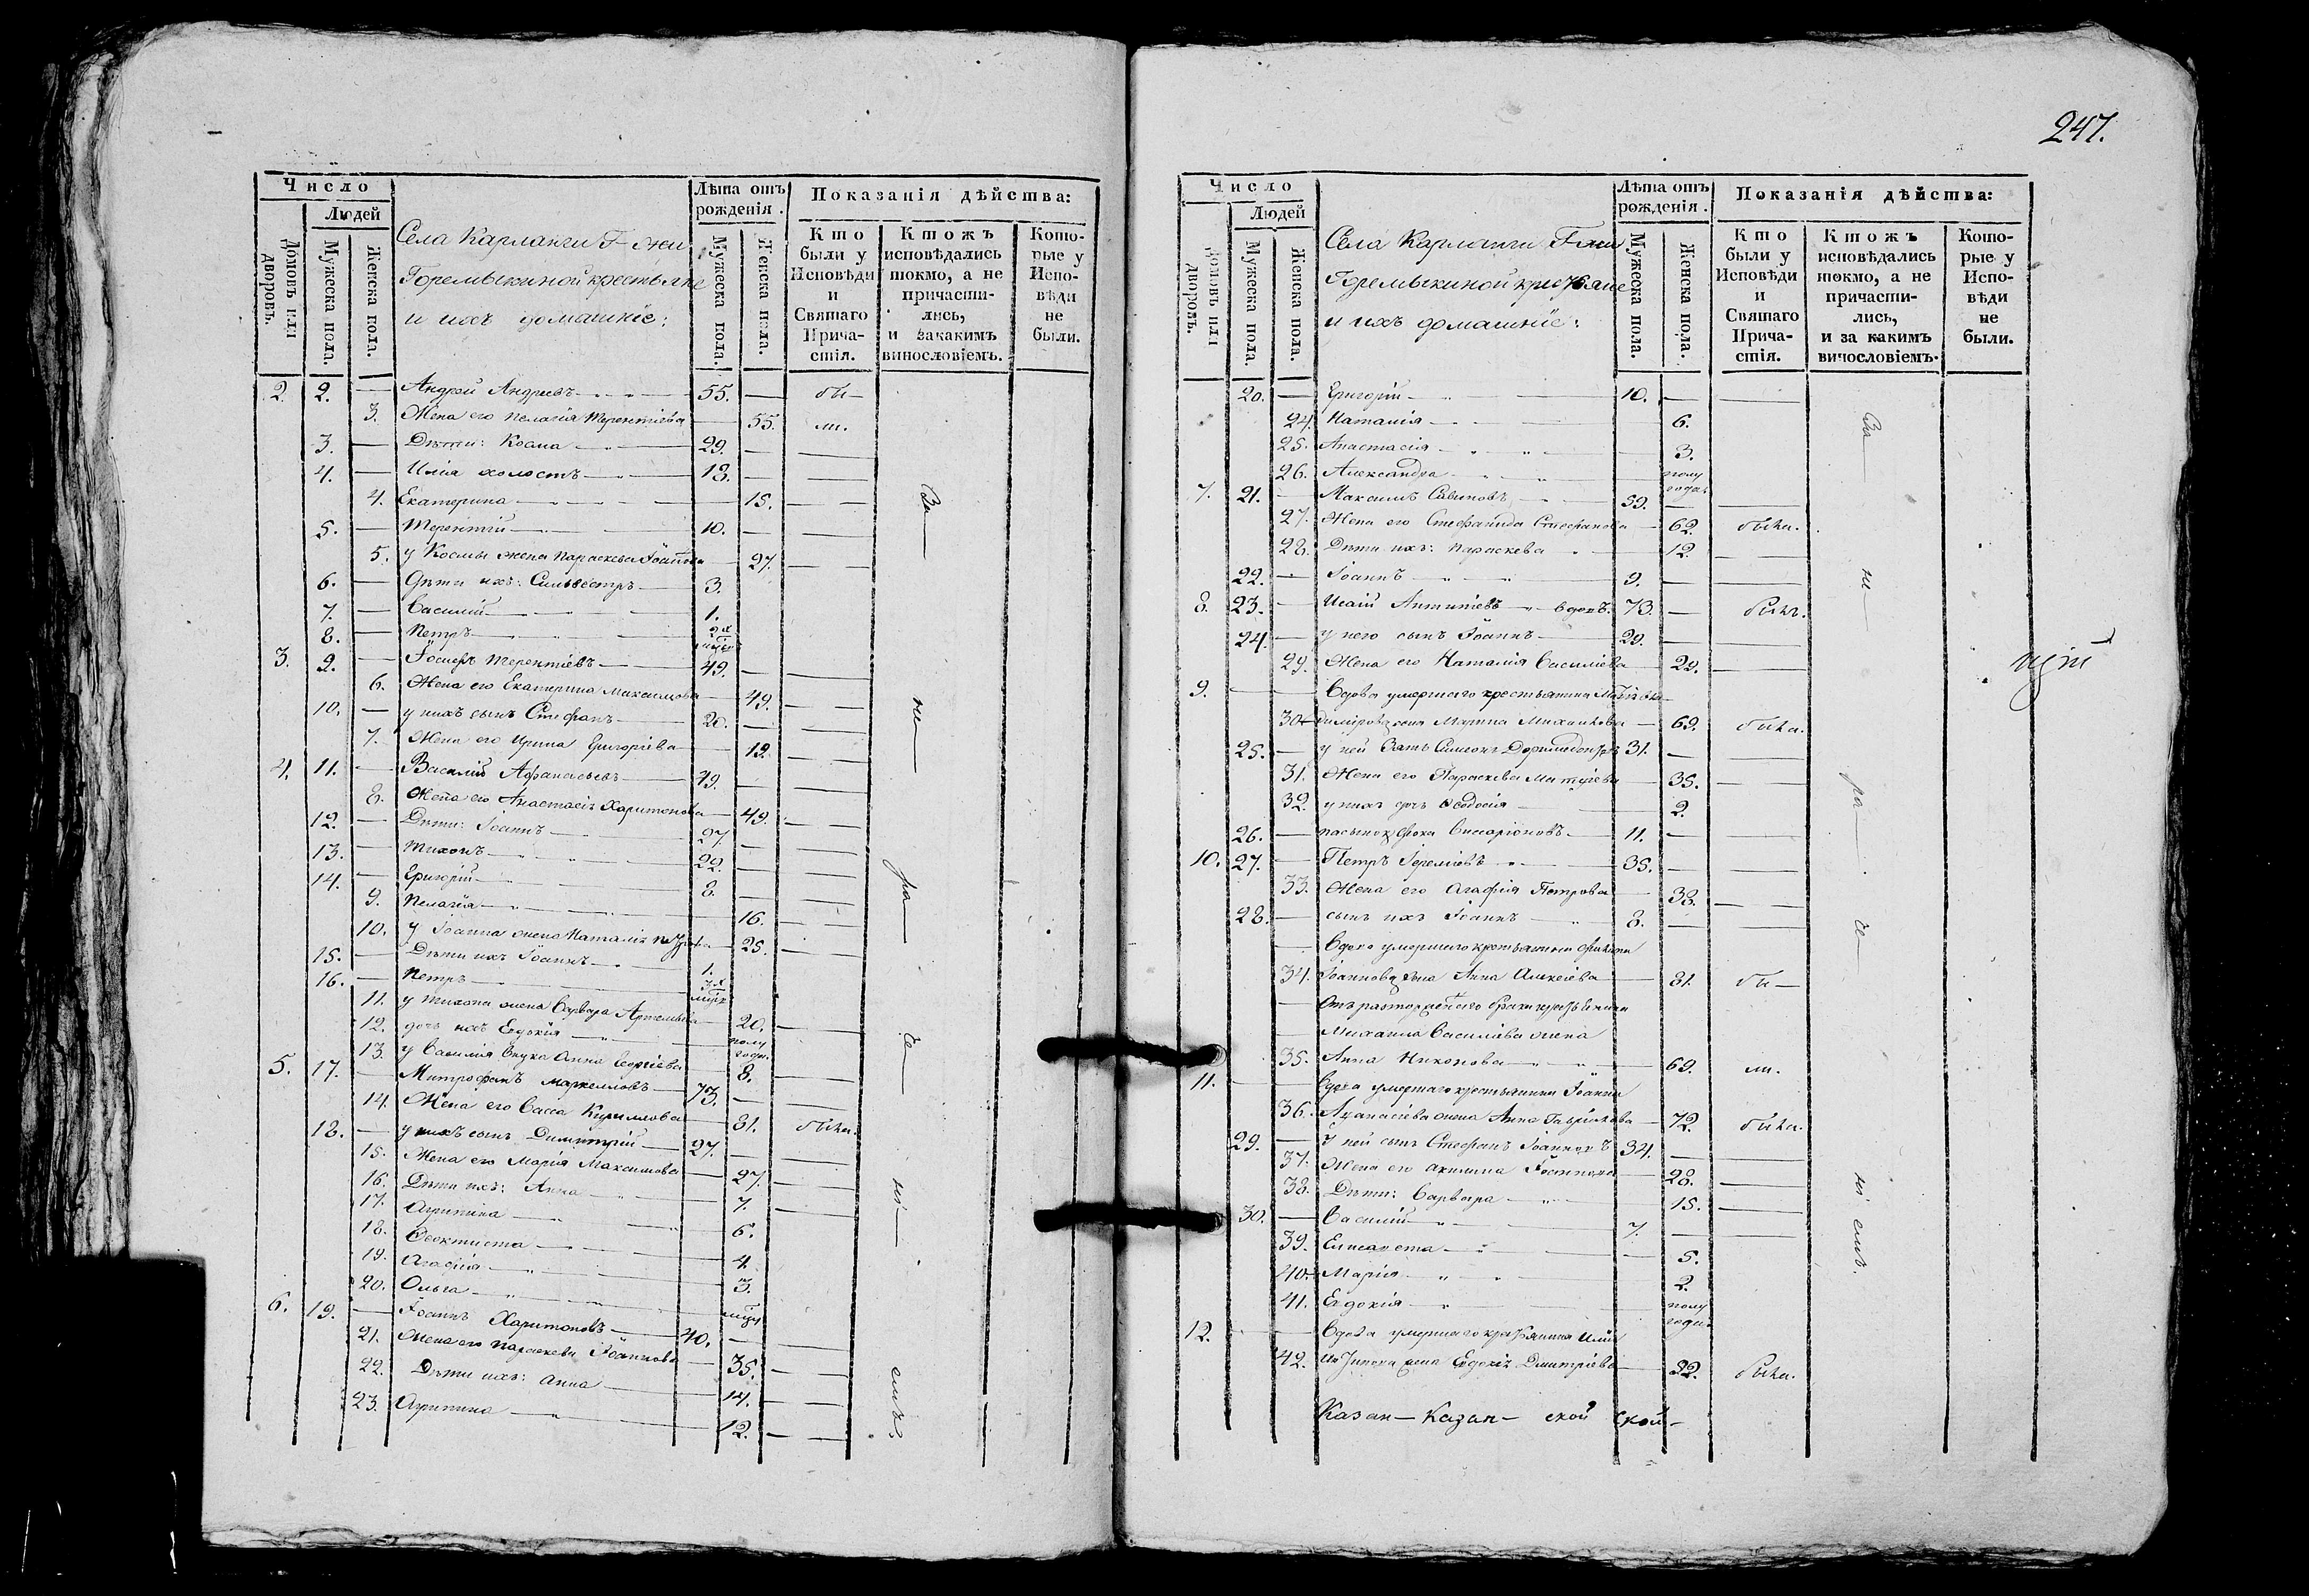 247.
Число
Людей
Домовъ или дворовъ.
Мужеска пола.
Женска пола.
Села Карланги Г-жи
Горемыкиной крестьяне
и ихъ домашніе:
Лѣта отъ рожденія.
Мужеска пола.
Женска пола.
Показанія дѣйства:
Кто были у Исповѣди и Святаго Причастія.
Ктожъ исповѣдались токмо, а не причастились, и закакимъ винословіемъ.
Которые у Исповѣди не были.
2. 2. — Андрей Андреевъ 55. — бы-
3. Жена его Пелагія Терентіева 55. ли.
3. — Дѣти: Косма 29. —
4. — Илія холостъ 18. —
4. Екатерина 15. —
5. — Терентій 10. —
5. у Космы жена Параскева Іоаннова 27. —
6. — Дѣти ихъ: Сильвестръ 3.
7. — Василій 1.
8. — Петръ
3. 9. — Іосифъ Терентіевъ 49. —
6. Жена его Екатерина Максимова 49. —
10. — у нихъ сынъ Стефанъ 20. —
7. Жена его Ирина Григоріева 19. —
4. 11. — Василій Афанасьевъ 49. —
8. Жена его Анастасія Харитонова 49. —
12. — Дѣти: Іоаннъ 27. —
13. — Тихонъ 22. —
14. — Григорій 8. —
9. Пелагія 16. —
10. у Іоанна жена Наталія Петрова 25. —
15. — Дѣти ихъ Іоаннъ 1.
16. — Петръ
11. у Тихона жена Варвара Артемьева 20. —
12. дочь ихъ Евдокія полу года.
13. у Василія внука Анна Георгіева 8. —
5. 17. — Митрофанъ Маркелловъ 73. —
14. Жена его Васса Кириллова 81. была.
18. — у нихъ сынъ Димитрій 27. —
15. Жена его Марія Максимова 27. —
16. Дѣти ихъ: Анна 7. —
17. Агрипина 6.
18. Феоктиста 4.
19. Агафія 3.
20. Ольга
6. 19. — Іоаннъ Харитоновъ 40. —
21. Жена его Параскева Іоаннова 35. —
22. Дѣти ихъ: Анна 14. —
23. Агрипина 12. —
За — не — ра — че — ні — емъ.
Число
Людей
Домовъ или дворовъ.
Мужеска пола.
Женска пола.
Села Карланги Г-жи
Горемыкиной крестьяне
и ихъ домашніе:
Лѣта отъ рожденія.
Мужеска пола.
Женска пола.
Показанія дѣйства:
Кто были у Исповѣди и Святаго Причастія.
Ктожъ исповѣдались токмо, а не причастились, и за какимъ винословіемъ.
Которые у Исповѣди не были.
20. — Григорій 10. —
24. Наталія 6.
25. Анастасія 3.
26. Александра полу года.
7. 21. — Максимъ Савиновъ 59. —
27. Жена его Стефанида Стефанова 62. была.
28. Дѣти ихъ: Параскева 12. —
22. — Іоаннъ 9. —
8. 23. — Исаій Антипіевъ вдовъ. 73. — былъ.
24. — у него сынъ Іоаннъ 29. —
29. Жена его Наталія Василіева 29. —
9. — Вдова умершаго крестьянина
30. жена Марина Михайлова 69. была.
25. — у ней зять Симеонъ 31. —
31. Жена его Параскева Матѳіева 35. —
32. у нихъ дочь Феодосія 2.
26. — пасынокъ Фока Виссаріоновъ 11. —
10. 27. — Петръ Іереміевъ 35. —
33. Жена его Агафія Петрова 38. —
28. — сынъ ихъ Іоаннъ 8. —
Вдова умершаго крестьянина
34. Іоаннова жена Анна Алексіева 81. бы-
Михаила Василіева жена
35. Анна Никонова 69. ли.
11. — Вдова умершаго крестьянина Іоанна
36. жена Анна Гавріилова 72. была.
29. — У ней сынъ Стефанъ Іоанновъ 34. —
37. Жена его Акилина Іоаннова 28. —
38. Дѣти: Варвара 15. —
30. — Василій 7. —
39. Елисавета 5.
40. Марія 2.
41. Евдокія полу года
12. — Вдова умершаго крестьянина Иліи
42. жена Евдокія Димитріева 92. была.
За — не — ра — че — ні емъ.
Казан — Казан — ской ской —